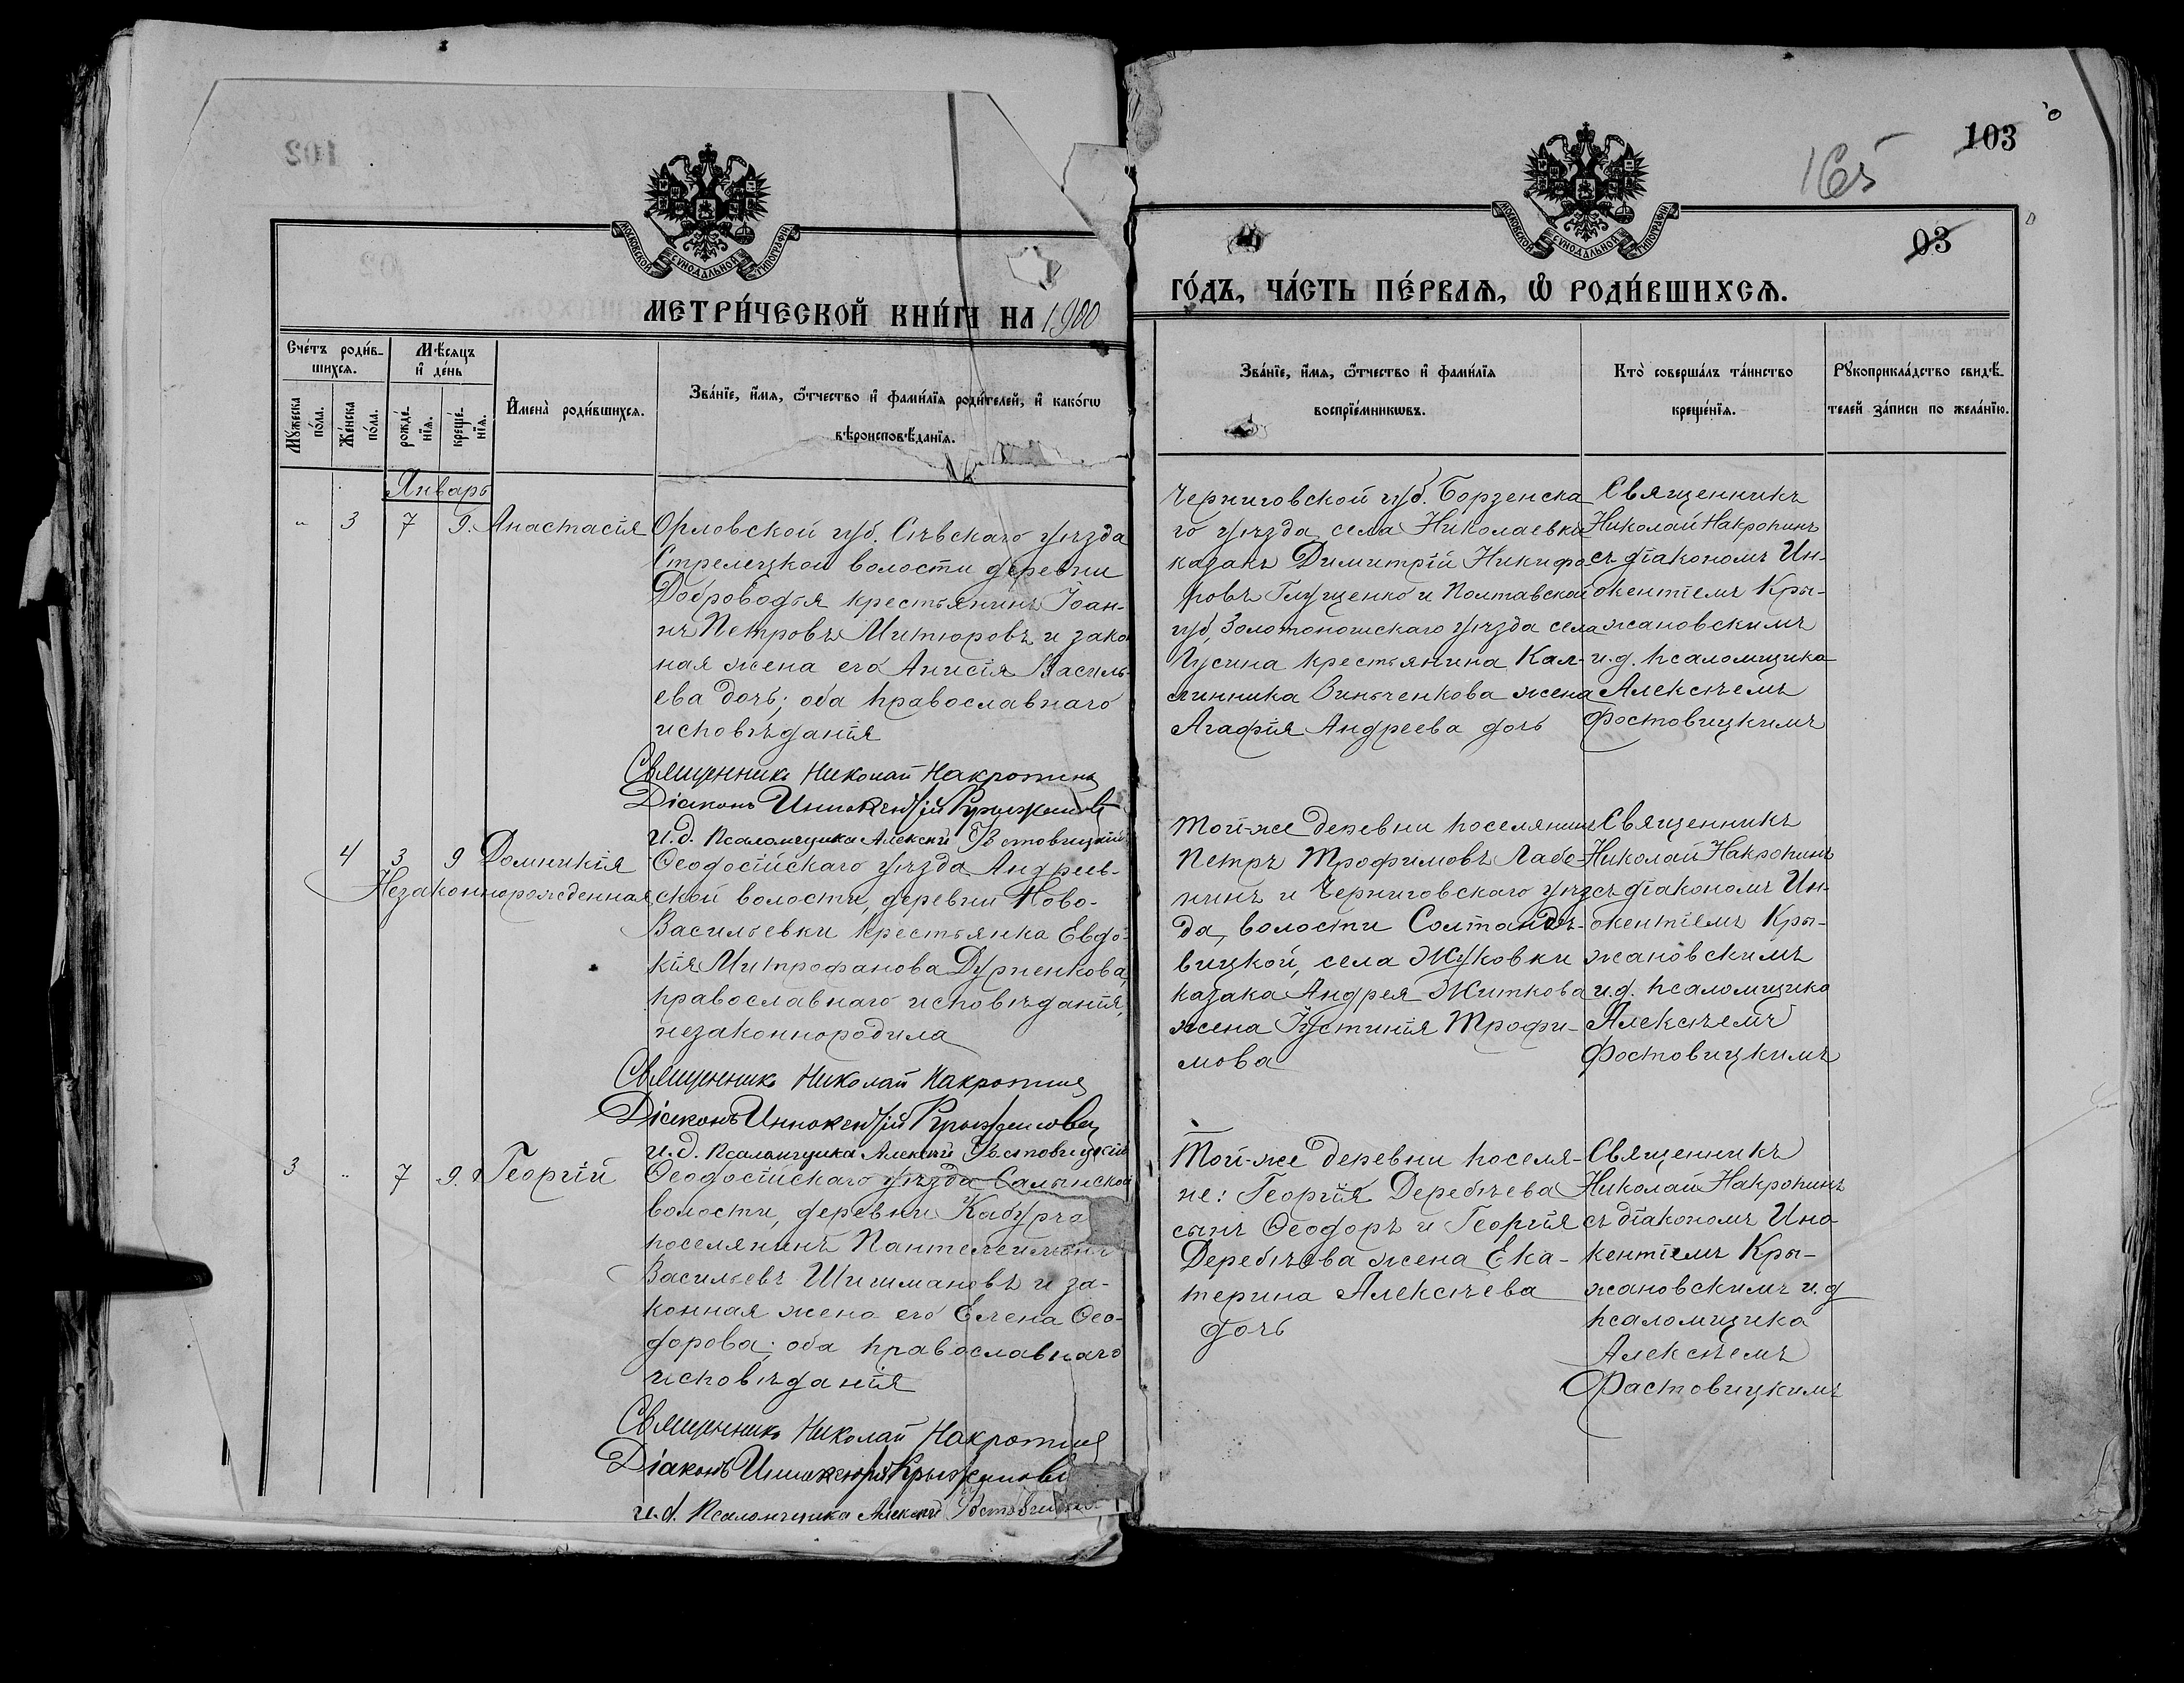 103
165
03
МОСКОВСКОЙ СѴНОДАЛЬНОЙ ТИПОГРАФІИ
МОСКОВСКОЙ СѴНОДАЛЬНОЙ ТИПОГРАФІИ
МЕТРИ́ЧЕСКОЙ КНИ́ГИ НА 1900
ГО́ДЪ, ЧА́СТЬ ПЕ́РВАѦ, Ѽ РОДИ́ВШИХСѦ.
Сче́тъ роди́в-
шихсѧ.
Мꙋ́жеска по́ла.
Же́нска по́ла.
Мѣ́сѧцъ и де́нь
рожде́-нїѧ.
креще́-нїѧ.
Имена̀ роди́вшихсѧ.
Зва́нїе, и́мѧ, ѻ҆́тчество и фами́лїѧ роди́телей, и како́гѡ
вѣроисповѣ́данїѧ.
Зва́нїе, и́мѧ, ѻ҆́тчество и фами́лїѧ
воспрїе́мникѡвъ.
Кто̀ соверша́лъ та́инство
креще́нїѧ.
Рꙋкоприкла́дство свидѣ́-
телей за́писи по жела́нїю.
Январь
" 3 7 9. Анастасія
Орловской губ. Сѣвскаго уѣзда
Стрелецкой волости деревни
Доброводья крестьянинъ Іоан-
нъ Петровъ Митюровъ и зако
ная жена его Анисія Василь-
ева дочь; оба православнаго
исповѣданія
Священникъ Николай Накропинъ
Діаконъ Иннокентій Крыжановс
и.д. Псаломщика Алексѣй Фостовицкій
Черниговской губ. Борзенска
го уѣзда села Николаевки
казакъ Димитрій Никифо
ровъ Глущенко и Полтавской
губ. Золотоношскаго уѣзда села
Гусина крестьянина Кал-
линника Винниченкова жена
Агафія Андреева дочь
Священникъ
Николай Накропинъ
съ діакономъ Ин-
окентіемъ Кры-
жановскимъ
и.д. псаломщика
Алексѣемъ
Фостовицкимъ
4 3 9 Домникія
Незаконнорожденная
Ѳеодосійскаго уѣзда Андреев-
ской волости, деревни Ново-
Васильевки крестьянка Евдо-
кія Митрофанова Дурненкова,
православнаго исповѣданія,
незаконнородила
Священникъ Николай Накропинъ
Діаконъ Иннокентій Крыжановс
и.д. Псаломщика Алексѣй Фостовицкій
Той-же деревни поселянинъ
Петръ Трофимовъ Лабе-
нинъ и Черниговскаго уѣз
да, волости
вицкой, села Жуковки
казака Андрея Житкова
жена Іустинія Трофи-
мова
Священникъ
Николай Накропинъ
съ діакономъ Ин-
окентіемъ Кры-
жановскимъ
и.д. псаломщика
Алексѣемъ
Фостовицкимъ
3 " 7 9. Георгій
Ѳеодосійскаго уѣзда Салынской
волости, деревни Кабурча
поселянинъ Пантелеимонъ
Васильевъ Шишмановъ и за-
конная жена его Елена Ѳео-
дорова; оба православнаго
исповѣданія
Священникъ Николай Накропинъ
Діаконъ Иннокентій Крыжановс
и.д. Псаломщика Алексѣй Фостовицкій
Той-же деревни поселя-
не: Георгія Деребѣева
сынъ Ѳеодоръ и Георгія
Деребѣева жена Ека-
терина Алексѣева
дочь
Священникъ
Николай Накропинъ
съ діакономъ Ино
кентіемъ Кры-
жановскимъ и.д
псаломщика
Алексѣемъ
Фастовицкимъ